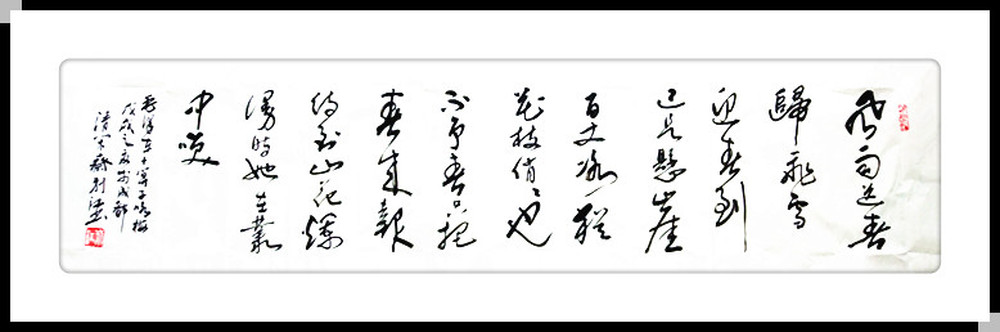 风雨送春
歸飛雪
迎春到
已是懸崖
百丈冰猶
花枝俏〻也
不争春只把
春來報
待到山花爛
漫時她在叢
中咲
毛澤东卜算子咏梅
戊戌之夏於成都